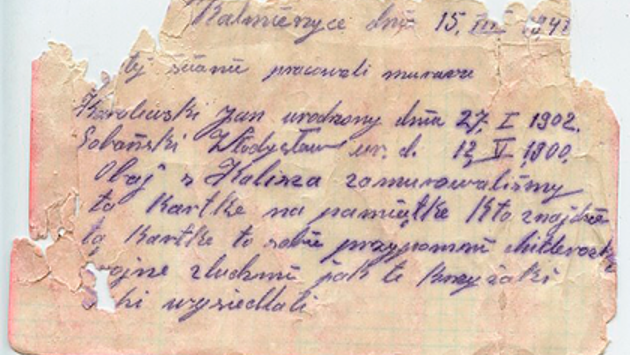 Kalmierzyce dnia 15. III 1941
tej scianie pracowali murarze
Karolewski Jan urodzony dnia 27. I 1902.
Sobański Władysław ur. d. 12 V 1900.
Obaj z Kalisza zamurowaliśmy
to kartke na pamiątke Kto znajdzie
tą kartke to sobie przypomni
jak te krzyżaki
wysiedlali